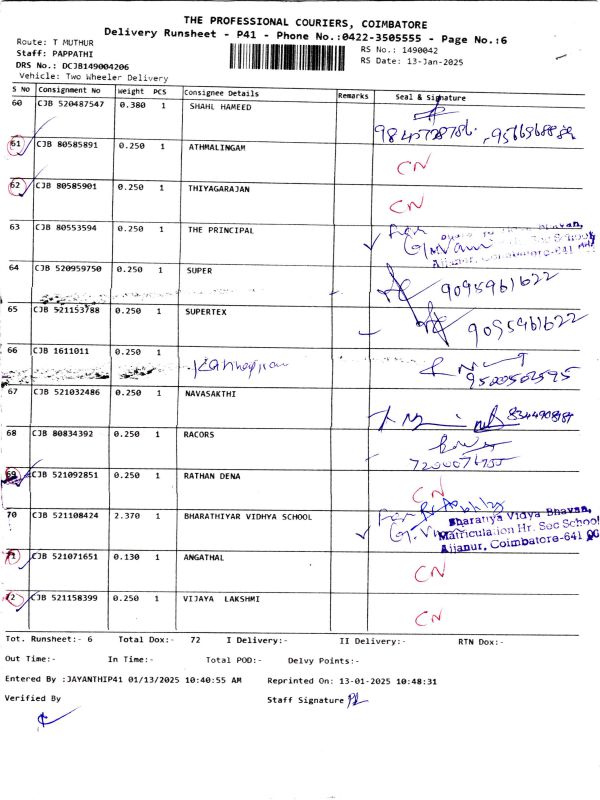 THE PROFESSIONAL COURIERS, COIMBATORE
Delivery Runsheet - P41 - Phone No.:0422-3505555 - Page No.:6
Route: T MUTHUR
Staff: PAPPATHI
DRS No.: DCJB149004206
Vehicle: Two Wheeler Delivery
RS No.: 1490042
RS Date: 13-Jan-2025
S No Consignment No Weight PCS Consignee Details Remarks Seal & Signature
60 CJB 520487547 0.380 1 SHAHL HAMEED
61 CJB 80585891 0.250 1 ATHMALINGAM CN
62 CJB 80585901 0.250 1 THIYAGARAJAN CN
63 CJB 80553594 0.250 1 THE PRINCIPAL For
64 CJB 520959750 0.250 1 SUPER 9095961622
65 CJB 521153788 0.250 1 SUPERTEX 9095961622
66 CJB 1611011 0.250 1 9500502595
67 CJB 521032486 0.250 1 NAVASAKTHI
68 CJB 80834392 0.250 1 RACORS
69 CJB 521092851 0.250 1 RATHAN DENA CN
70 CJB 521108424 2.370 1 BHARATHIYAR VIDHYA SCHOOL For
Bharatiya Vidya Bhavan,
Matriculation Hr. Sec School
Ajjanur, Coimbatore-641
71 CJB 521071651 0.130 1 ANGATHAL CN
72 CJB 521158399 0.250 1 VIJAYA LAKSHMI CN
Tot. Runsheet:- 6 Total Dox:- 72 I Delivery:- II Delivery:- RTN Dox:-
Out Time:- In Time:- Total POD:- Delvy Points:-
Entered By :JAYANTHIP41 01/13/2025 10:40:55 AM Reprinted On: 13-01-2025 10:48:31
Verified By Staff Signature